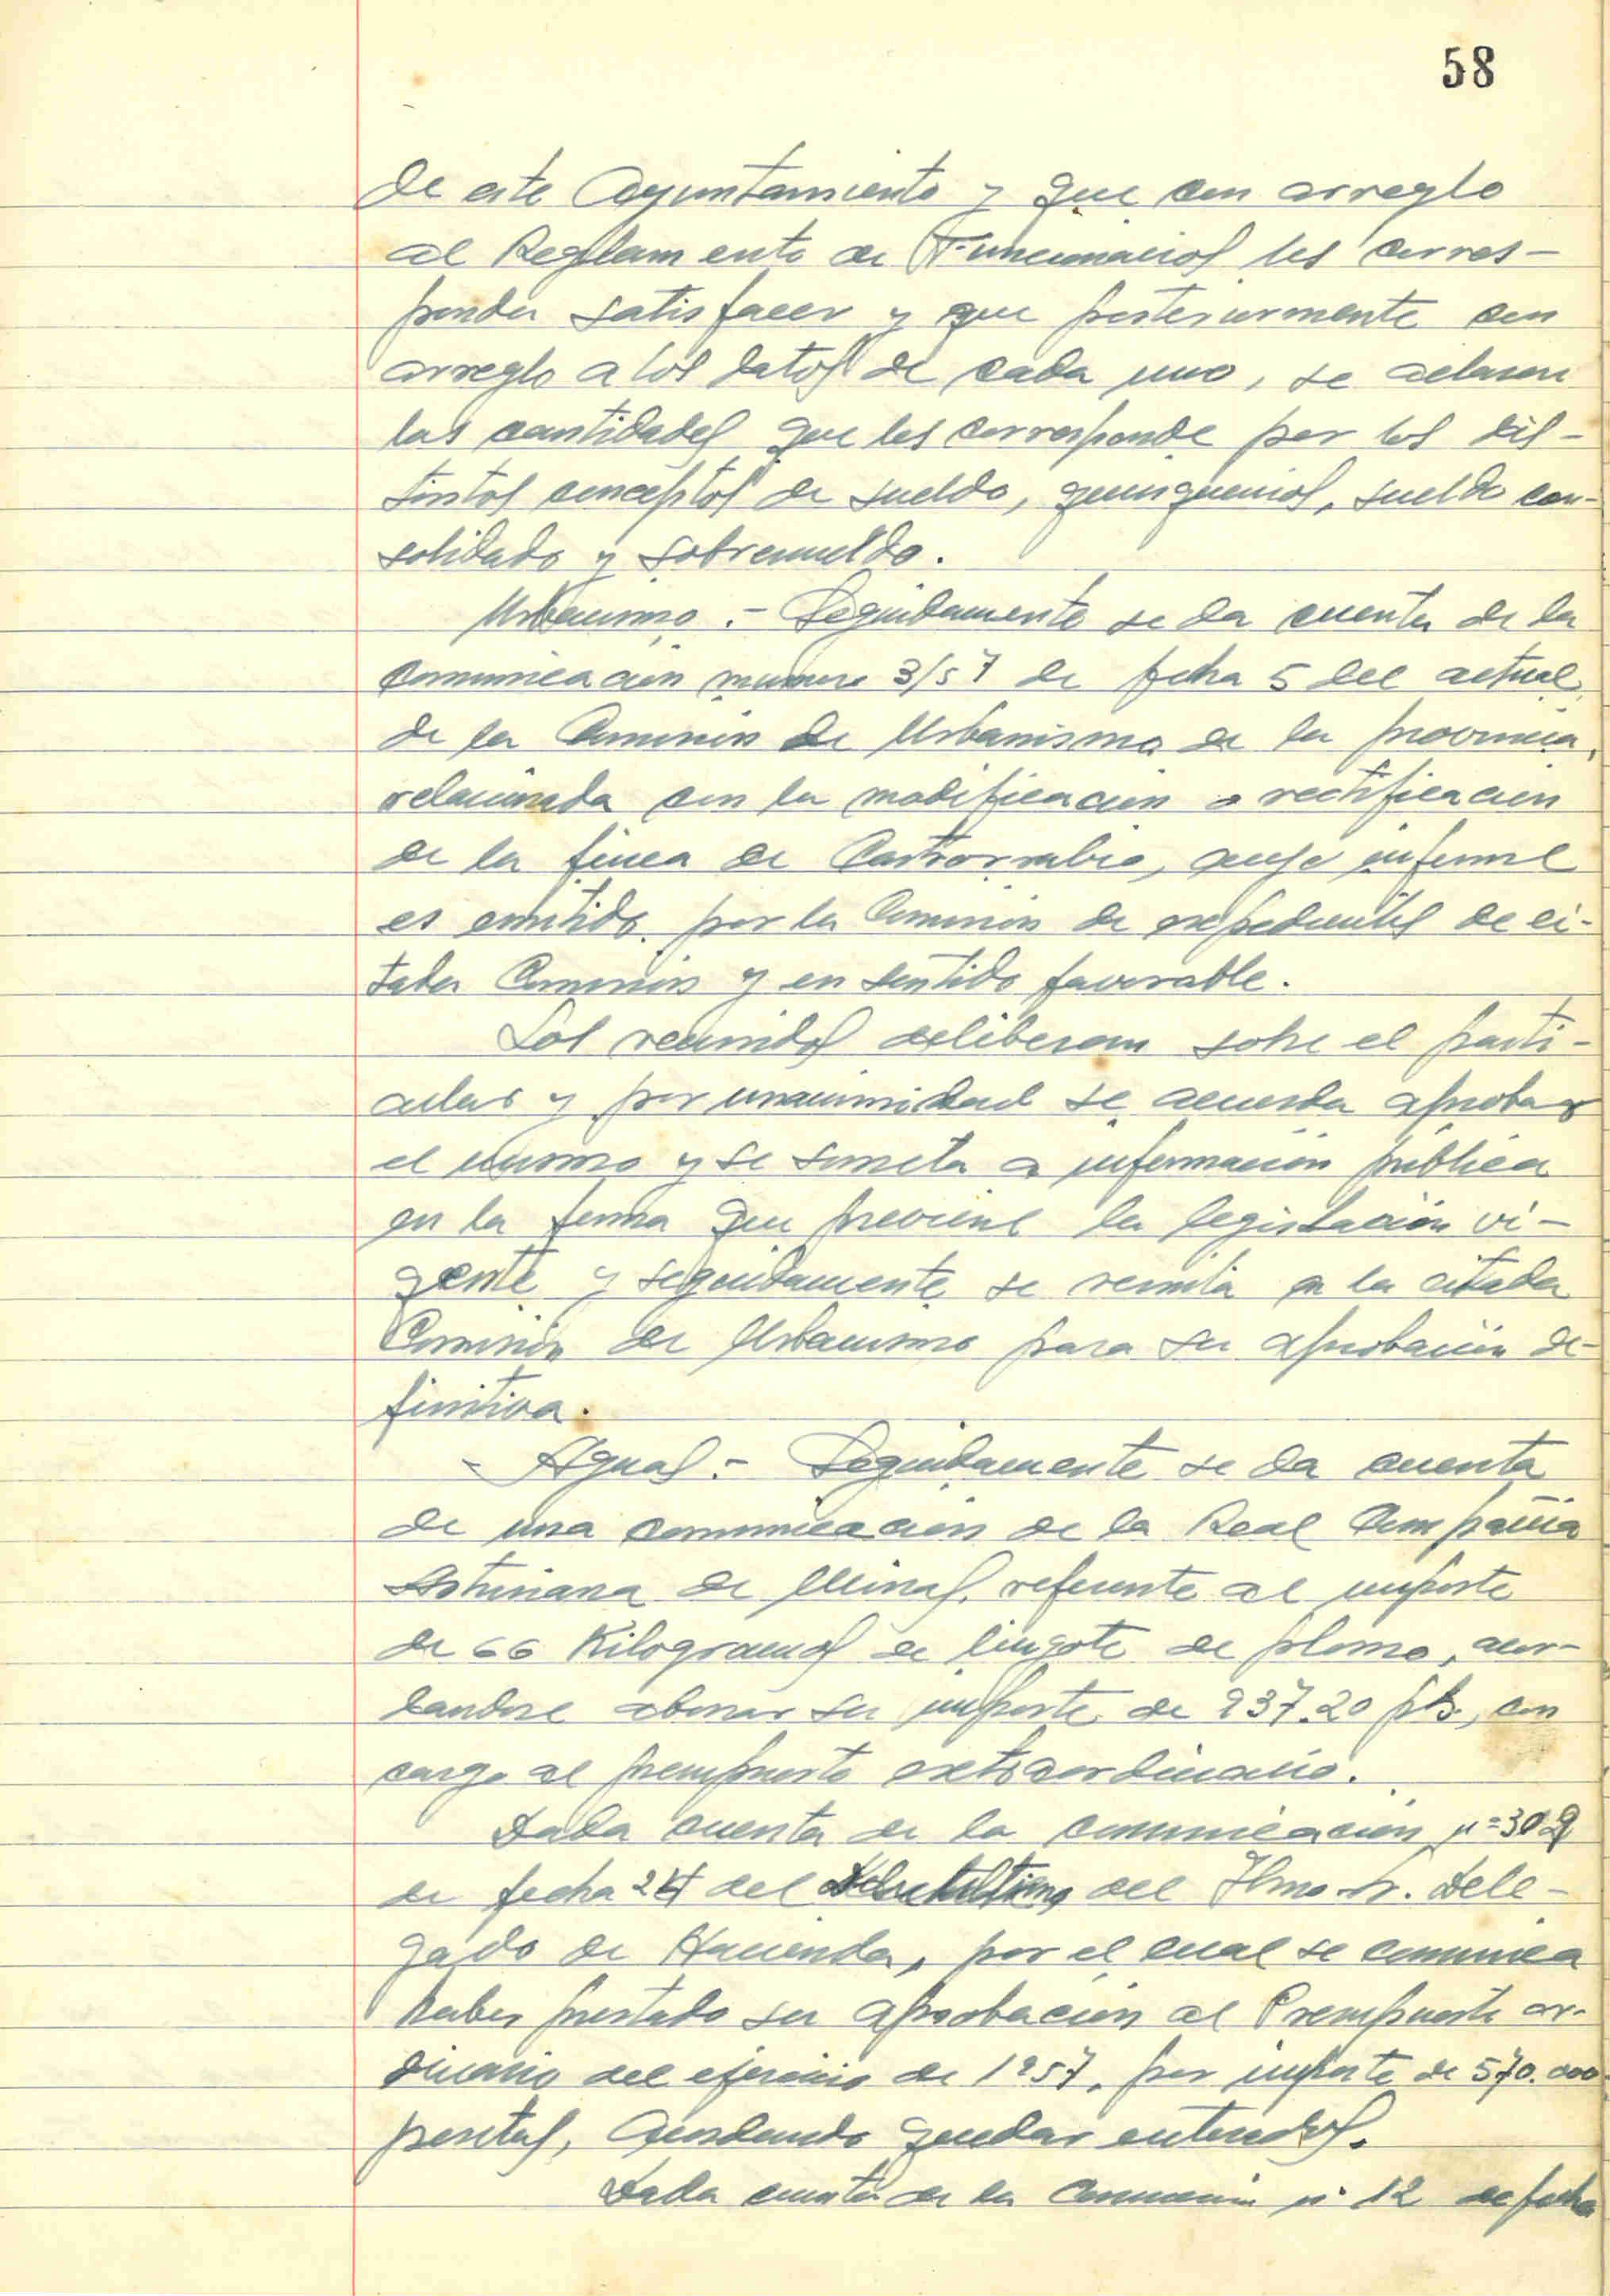 58
de este Ayuntamiento y que con arreglo
al Reglamento de Funcionarios les corres-
ponder satisfacer y que posteriormente con
arreglo a los datos de cada uno, se aclaren
las cantidades que les corresponde por los dis-
tintos conceptos de sueldo, quinquenios, sueldo con-
solidado y sobresueldo.
Urbanismo.- Seguidamente se da cuenta de la
comunicación numero 3/57 de fecha 5 del actual,
de la Comisión de Urbanismo de la provincia,
relacionada con la modificación o rectificación
de la finca de Castrorrubio, cuyo informe
es emitido por la Comisión de expedientes de ci-
tada Comisión y en sentido favorable.
Los reunidos deliberan sobre el parti-
cular y por unanimidad se acuerda aprobar
el mismo y se someta a información pública
en la forma que previene la legislación vi-
gente y seguidamente se remita a la citada
Comisión de Urbanismo para su aprobación de-
finitiva.
- Aguas.- Seguidamente se da cuenta
de una comunicación de la Real Compañia
Asturiana de Minas, referente al importe
de 66 Kilogramos de lingote de plomo, acor-
dandose abonar su importe de 937.20 pts., con
cargo al presupuesto extraordinario.
Dada cuenta de la comunicación nº 302
de fecha 24 del del Ilmo Sr. Dele-
gado de Hacienda, por el cual se comunica
haber prestado su aprobación al Presupuesto or-
dinario del ejercicio de 1957, por importe de 570.000
pesetas, Acordando quedar enterados.
Dada cuenta de la Comunión nº 12 de fecha